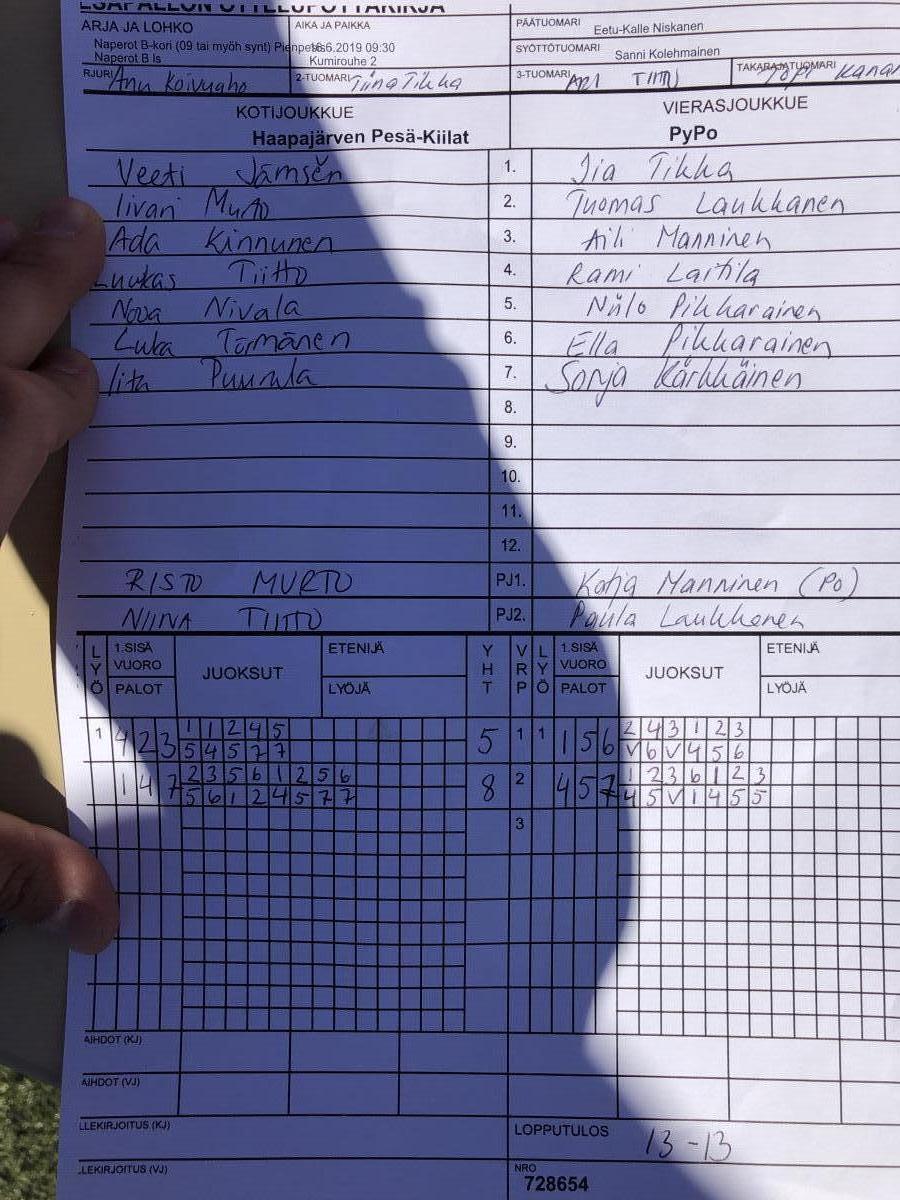 ESÄPALLON OTTELUPÖYTÄKIRJA
ARJA JA LOHKO AIKA JA PAIKKA PÄÄTUOMARI Eetu-Kalle Niskanen
Naperot B-kori (09 tai myöh synt) Pienpesis 16.6.2019 09:30 SYÖTTÖTUOMARI Sanni Kolehmainen
Naperot B Is Kumirouhe 2
RJURI Anu Koivuaho 2-TUOMARI Tiina Tikka 3-TUOMARI ARI TIITTO TAKARAJATUOMARI
KOTIJOUKKUE VIERASJOUKKUE
Haapajärven Pesä-Kiilat PyPo
Veeti Jämsén 1. Iia Tikka
Iivari Murto 2. Tuomas Laukkanen
Ada Kinnunen 3. Aili Manninen
Luukas Tiitto 4. Rami Laitila
Nova Nivala 5. Niilo Pikkarainen
Luka Törmänen 6. Ella Pikkarainen
Iita Puurula 7. Sonja Kärkkäinen
8.
9.
10.
11.
12.
RISTO MURTO PJ1. Katja Manninen (Po)
NIINA TIITTO PJ2. Paula Laukkanen
LYÖ 1.SISÄ VUORO PALOT JUOKSUT ETENIJÄ LYÖJÄ YHT VRP LYÖ 1.SISÄ VUORO PALOT JUOKSUT ETENIJÄ LYÖJÄ
1 4 2 3 1 1 2 4 5 5 1 1 1 5 6 2 4 3 1 2 3
5 4 5 7 7 V 6 V 4 5 6
1 4 7 2 3 5 6 1 2 5 6 8 2 4 5 7 1 2 3 6 1 2 3
5 6 1 2 4 5 7 7 4 5 V 1 4 5 5
3
AIHDOT (KJ)
AIHDOT (VJ)
LLEKIRJOITUS (KJ) LOPPUTULOS 13-13
LLEKIRJOITUS (VJ) NRO
728654